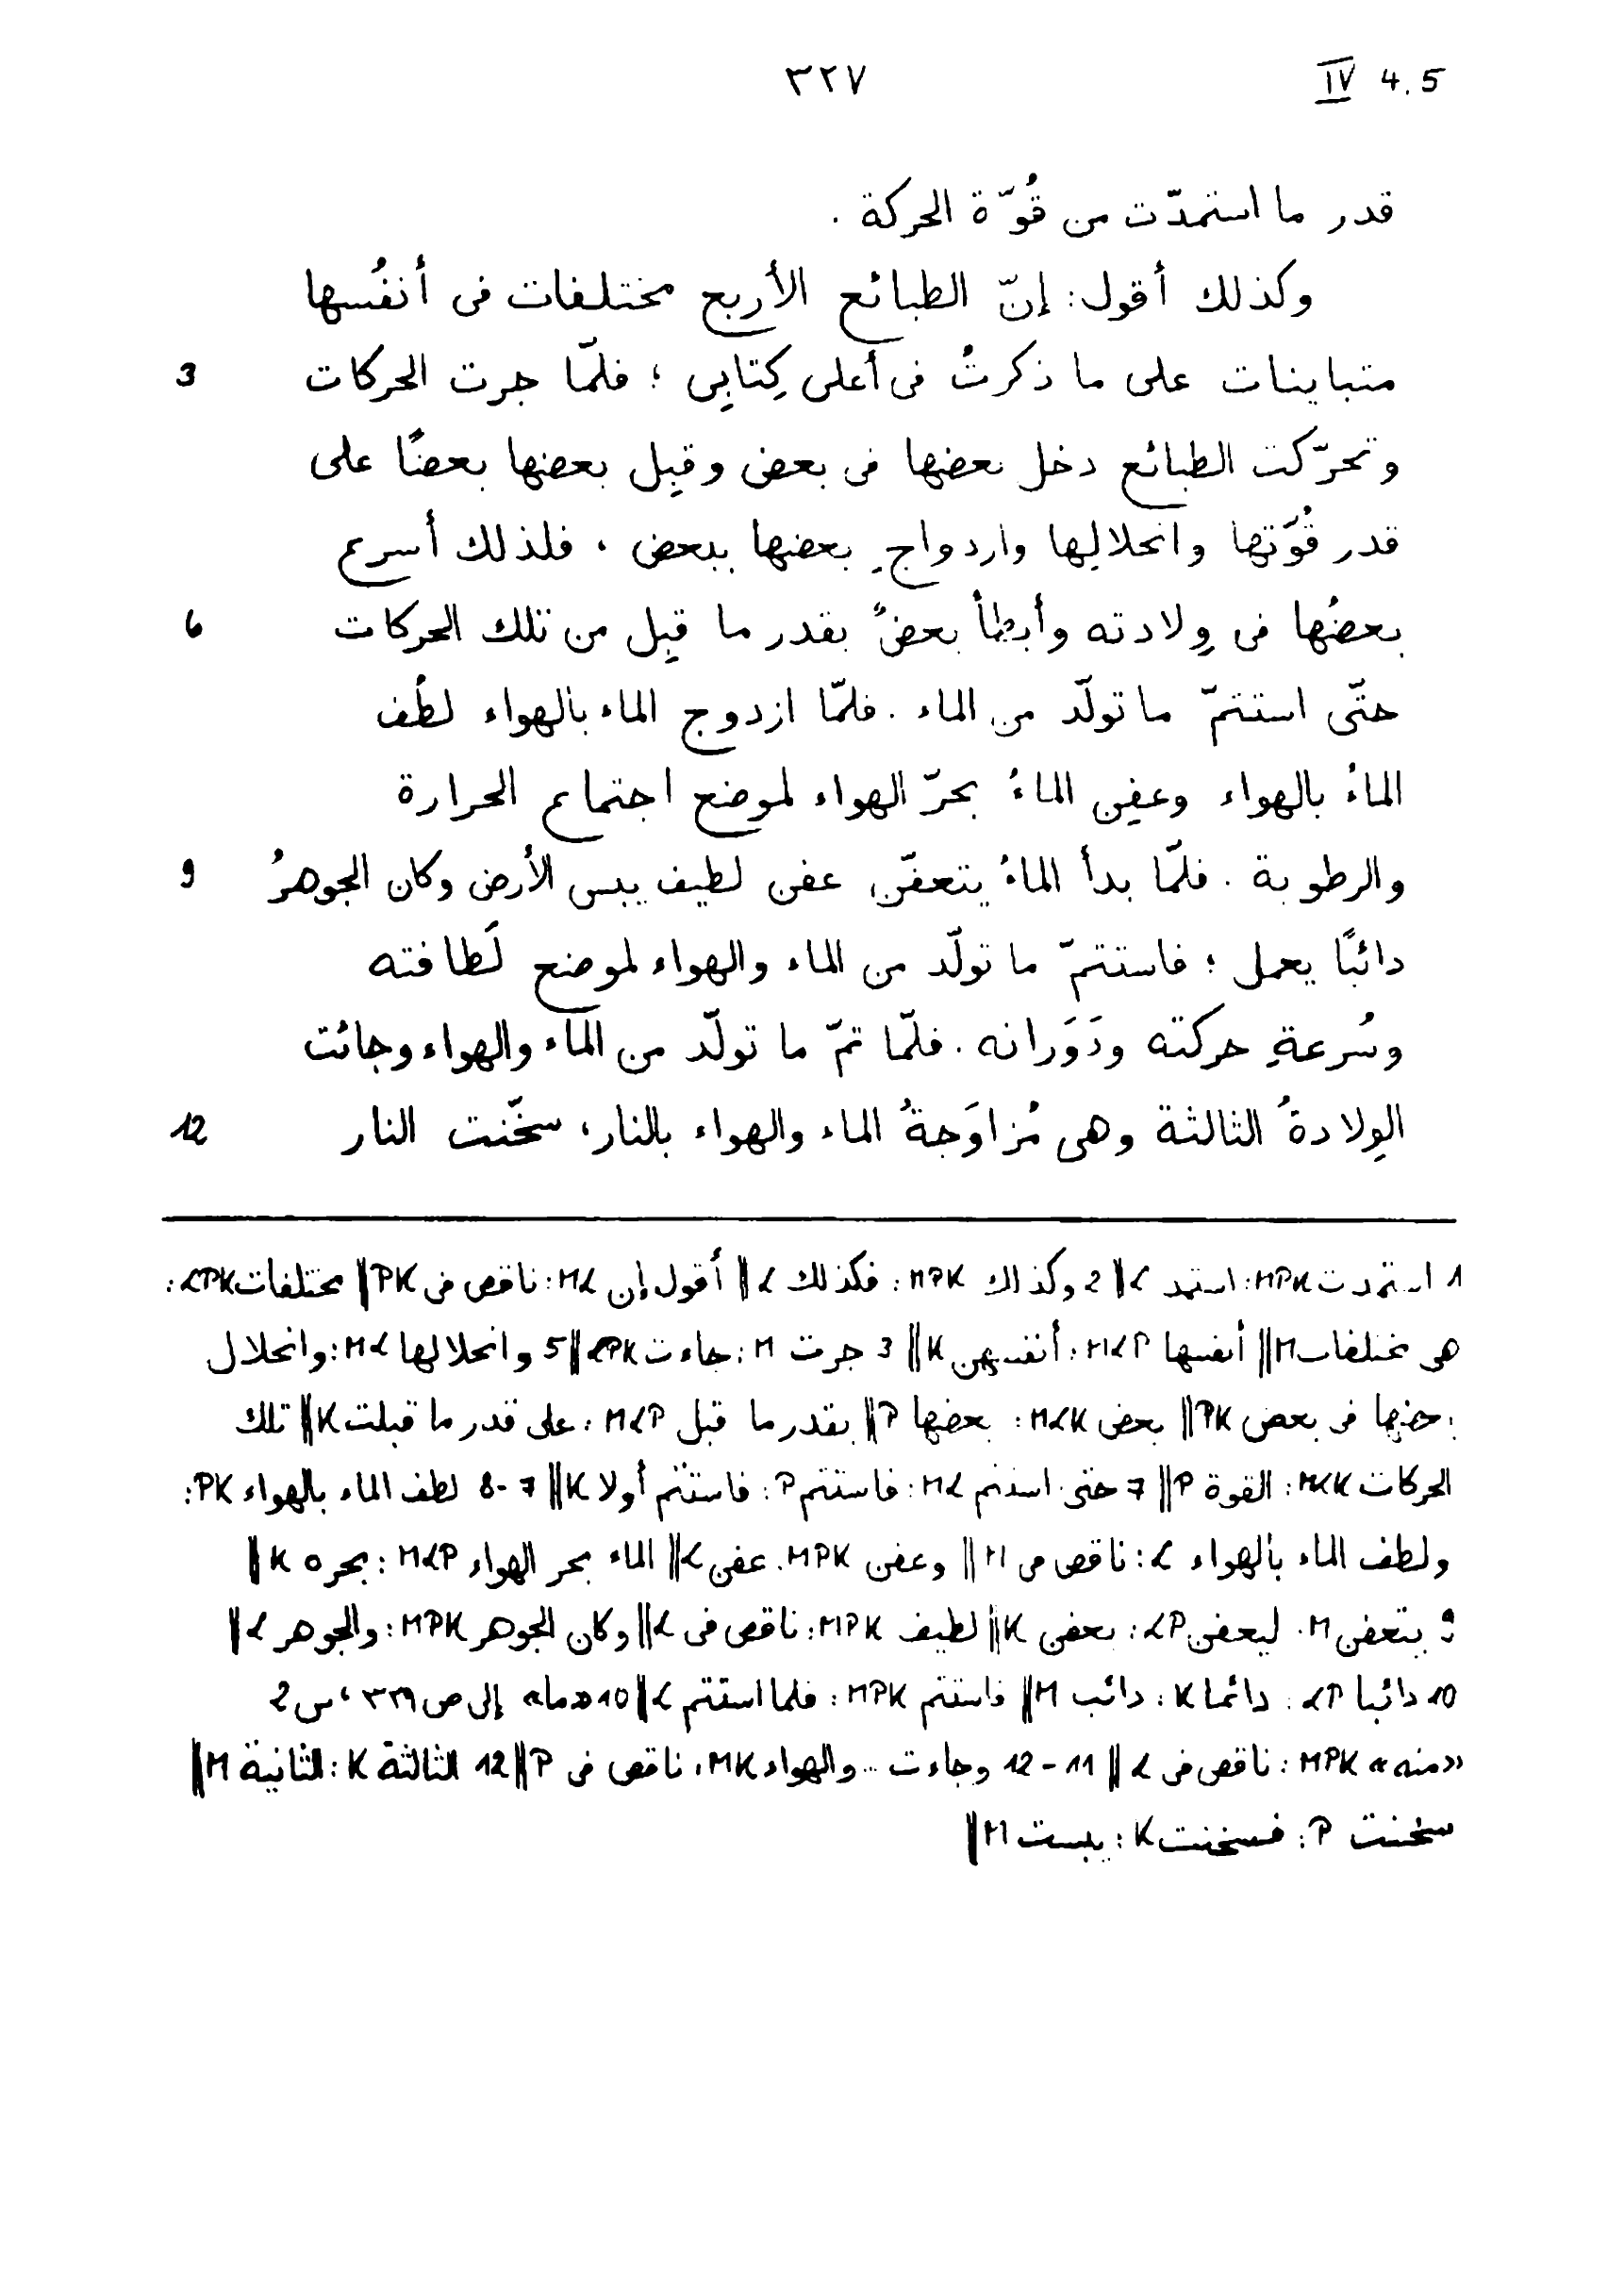 ٣٢٧
IV 4.5
قدر ما استمدّت من قُوّة الحركة .
وكذلك أقول: إنّ الطبائع الأربع مختلفات فى أنفُسها
متباينات على ما ذكرتُ فى أعلى كِتابِى ؛ فلمّا جرت الحركات
3
وتحرّكت الطبائع دخل بعضها فى بعض وقبِل بعضها بعضًا على
قدر قُوّتها وانحلالِها وازدواجِ بعضها ببعض ، فلذلك أسرع
بعضُها فى وِلادته وأبطأ بعضٌ بقدر ما قبِل من تلك الحركات
6
حتّى استتمّ ما تولّد من الماء . فلمّا ازدوج الماء بالهواء لطُف
الماءُ بالهواء وعفِن الماءُ بحرّ الهواء لموضع اجتماع الحرارة
والرطوبة . فلمّا بدأ الماءُ يتعفّن عفن لطيف يبس الأرض وكان الجوهرُ
9
دائبًا يعمل ؛ فاستتمّ ما تولّد من الماء والهواء لموضع لَطافته
وسُرعةِ حركته ودَوَرانه . فلمّا تمّ ما تولّد من الماء والهواء وجائت
الوِلادةُ الثالثة وهى مُزاوَجةُ الماء والهواء بالنار، سخّنت النار
12
1 استمدت MPK: استمد L || 2 وكذلك MPK: فكذلك L || أقول إن ML: ناقص فى PK || مختلفات LPK:
هى مختلفات M || أنفسها MLP: أنفسهن K || 3 جرت M: جاءت LPK || 5 وانحلالها ML: وانحلال
بعضها فى بعض PK || بعض MLK: بعضها P || بقدر ما قبل MLP: على قدر ما قبلت K || تلك
الحركات MLK: القوة P || 7 حتى استتم ML: فاستتم P: فاستتم أولا K || 7-8 لطف الماء بالهواء PK:
ولطف الماء بالهواء L: ناقص فى M || وعفن MPK: عفن L || الماء بحر الهواء MLP: بحره K ||
9 يتعفن M: ليعفن LP: يعفن K || لطيف MPK: ناقص فى L || وكان الجوهر MPK: والجوهر L ||
10 دائبا LP: دائما K: دائب M || فاستتم MPK: فلما استتم L || 10 «ما» إلى ص ٣٢٩، س 2
«منه» MPK: ناقص فى L || 11-12 وجاءت .. والهواء MK: ناقص فى P || 12 الثالثة K: الثانية M ||
سخنت P: فسخنت K: يبست M ||